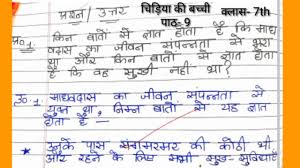 प्रश्न / उत्तर
चिड़िया की बच्ची
पाठ-9
क्लास- 7th
प्र०1. किन बातों से ज्ञात होता है कि माध
वदास का जीवन संपन्नता से भरा
था और किन बातों से ज्ञात होता
है कि वह सुखी नहीं था?
उ०1. माधवदास का जीवन संपन्नता से
युक्त था, निम्न बातों से यह ज्ञात
होता है –
उनके पास संगमरमर की कोठी थी
और रहने के लिए सभी सुख सुविधाएँ